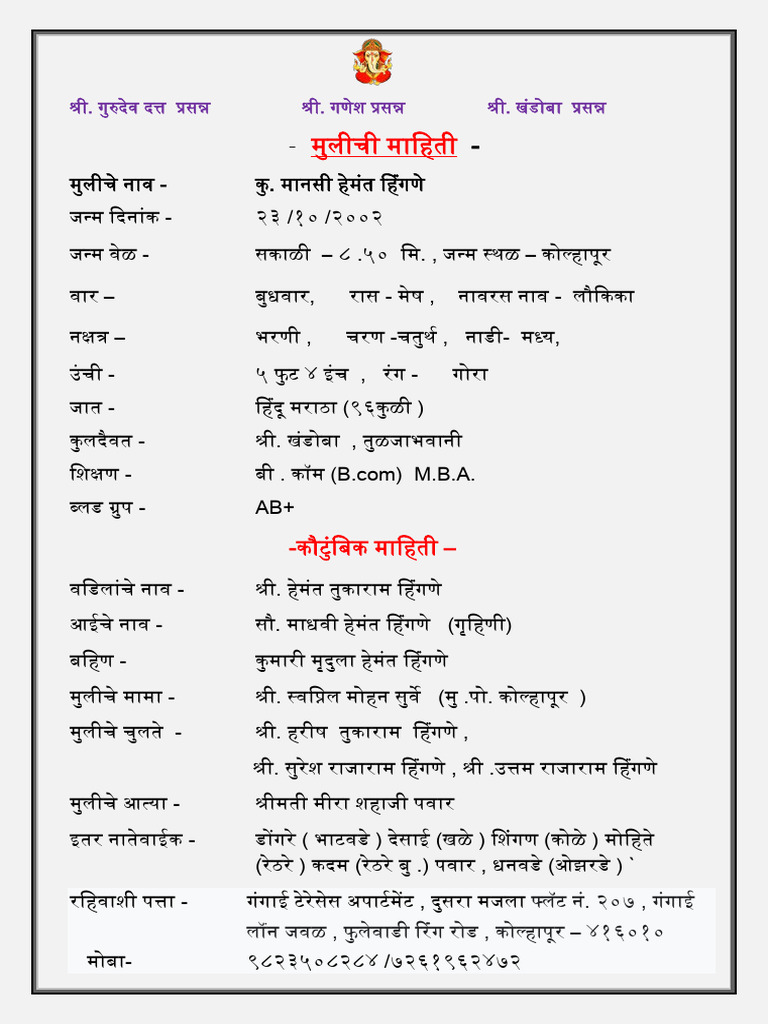 श्री. गुरुदेव दत्त प्रसन्न श्री. गणेश प्रसन्न श्री. खंडोबा प्रसन्न
- मुलीची माहिती -
मुलीचे नाव - कु. मानसी हेमंत हिंगणे
जन्म दिनांक - २३ /१० /२००२
जन्म वेळ - सकाळी – ८ .५० मि. , जन्म स्थळ – कोल्हापूर
वार – बुधवार, रास - मेष , नावरस नाव - लौकिका
नक्षत्र – भरणी , चरण -चतुर्थ , नाडी- मध्य,
उंची - ५ फुट ४ इंच , रंग - गोरा
जात - हिंदू मराठा (९६कुळी )
कुलदैवत - श्री. खंडोबा , तुळजाभवानी
शिक्षण - बी . कॉम (B.com) M.B.A.
ब्लड ग्रुप - AB+
-कौटुंबिक माहिती –
वडिलांचे नाव - श्री. हेमंत तुकाराम हिंगणे
आईचे नाव - सौ. माधवी हेमंत हिंगणे (गृहिणी)
बहिण - कुमारी मृदुला हेमंत हिंगणे
मुलीचे मामा - श्री. स्वप्निल मोहन सुर्वे (मु .पो. कोल्हापूर )
मुलीचे चुलते - श्री. हरीष तुकाराम हिंगणे ,
श्री. सुरेश राजाराम हिंगणे , श्री .उत्तम राजाराम हिंगणे
मुलीचे आत्या - श्रीमती मीरा शहाजी पवार
इतर नातेवाईक - डोंगरे ( भाटवडे ) देसाई (खळे ) शिंगण (कोळे ) मोहिते
(रेठरे ) कदम (रेठरे बु .) पवार , धनवडे (ओझरडे ) `
रहिवाशी पत्ता - गंगाई टेरेसेस अपार्टमेंट , दुसरा मजला फ्लॅट नं. २०७ , गंगाई
लॉन जवळ , फुलेवाडी रिंग रोड , कोल्हापूर – ४१६०१०
मोबा- ९८२३५०८२८४ /७२६१९६२४७२